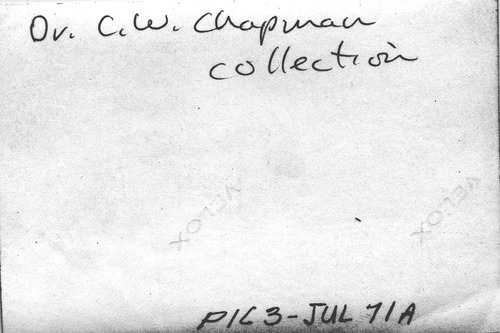 Dr. C.W. Chapman
collection
VELOX
VELOX
PIC 3-JUL 71A